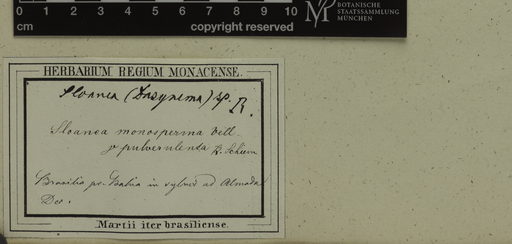 0 1 2 3 4 5 6 7 8 9 10
cm
copyright reserved
BOTANISCHE
STAATSSAMMLUNG
MÜNCHEN
HERBARIUM REGIUM MONACENSE.
Sloanea (Dasynema) sp.
Sloanea monosperma Vell.
γ pulverulenta K. Schum
Brasilia pr. Bahia in sylvis ad Almada
Dec.
Martii iter brasiliense.